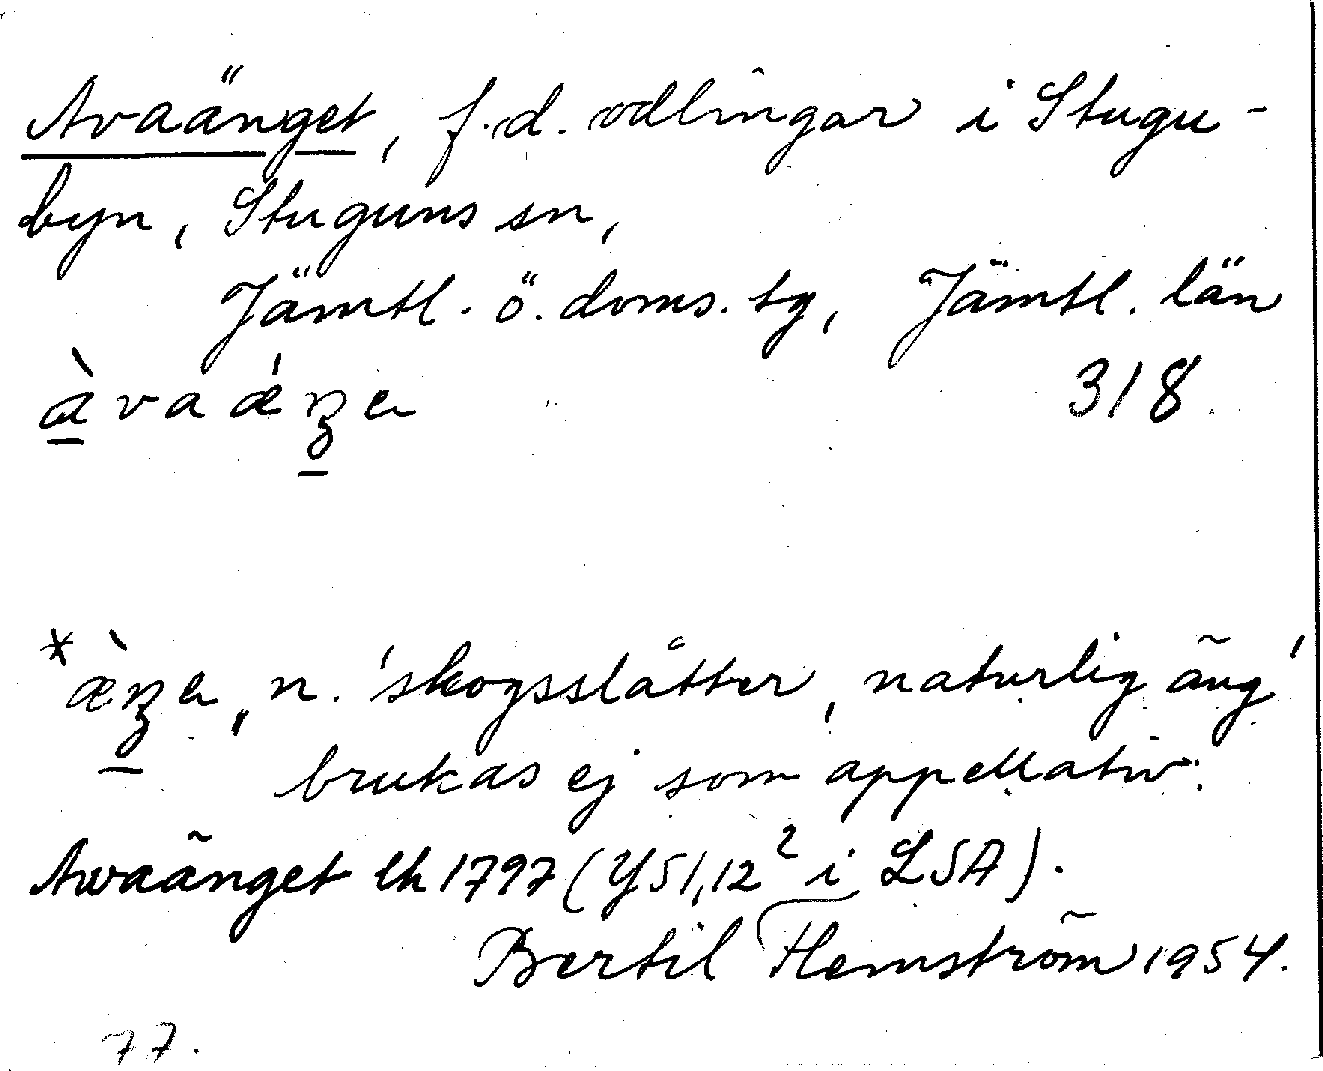 Avaänget, f.d. odlingar i Stugu-
byn, Stuguns sn,
Jämtl. ö. doms. tg, Jämtl. län
àvaǽŋe 318
*æ̀ŋe, n. 'skogsslåtter, naturlig äng'
brukas ej som appellativ.
Awaänget lh 1797 (Y51,12² i LSA).
Bertil Flemström 1954.
77.